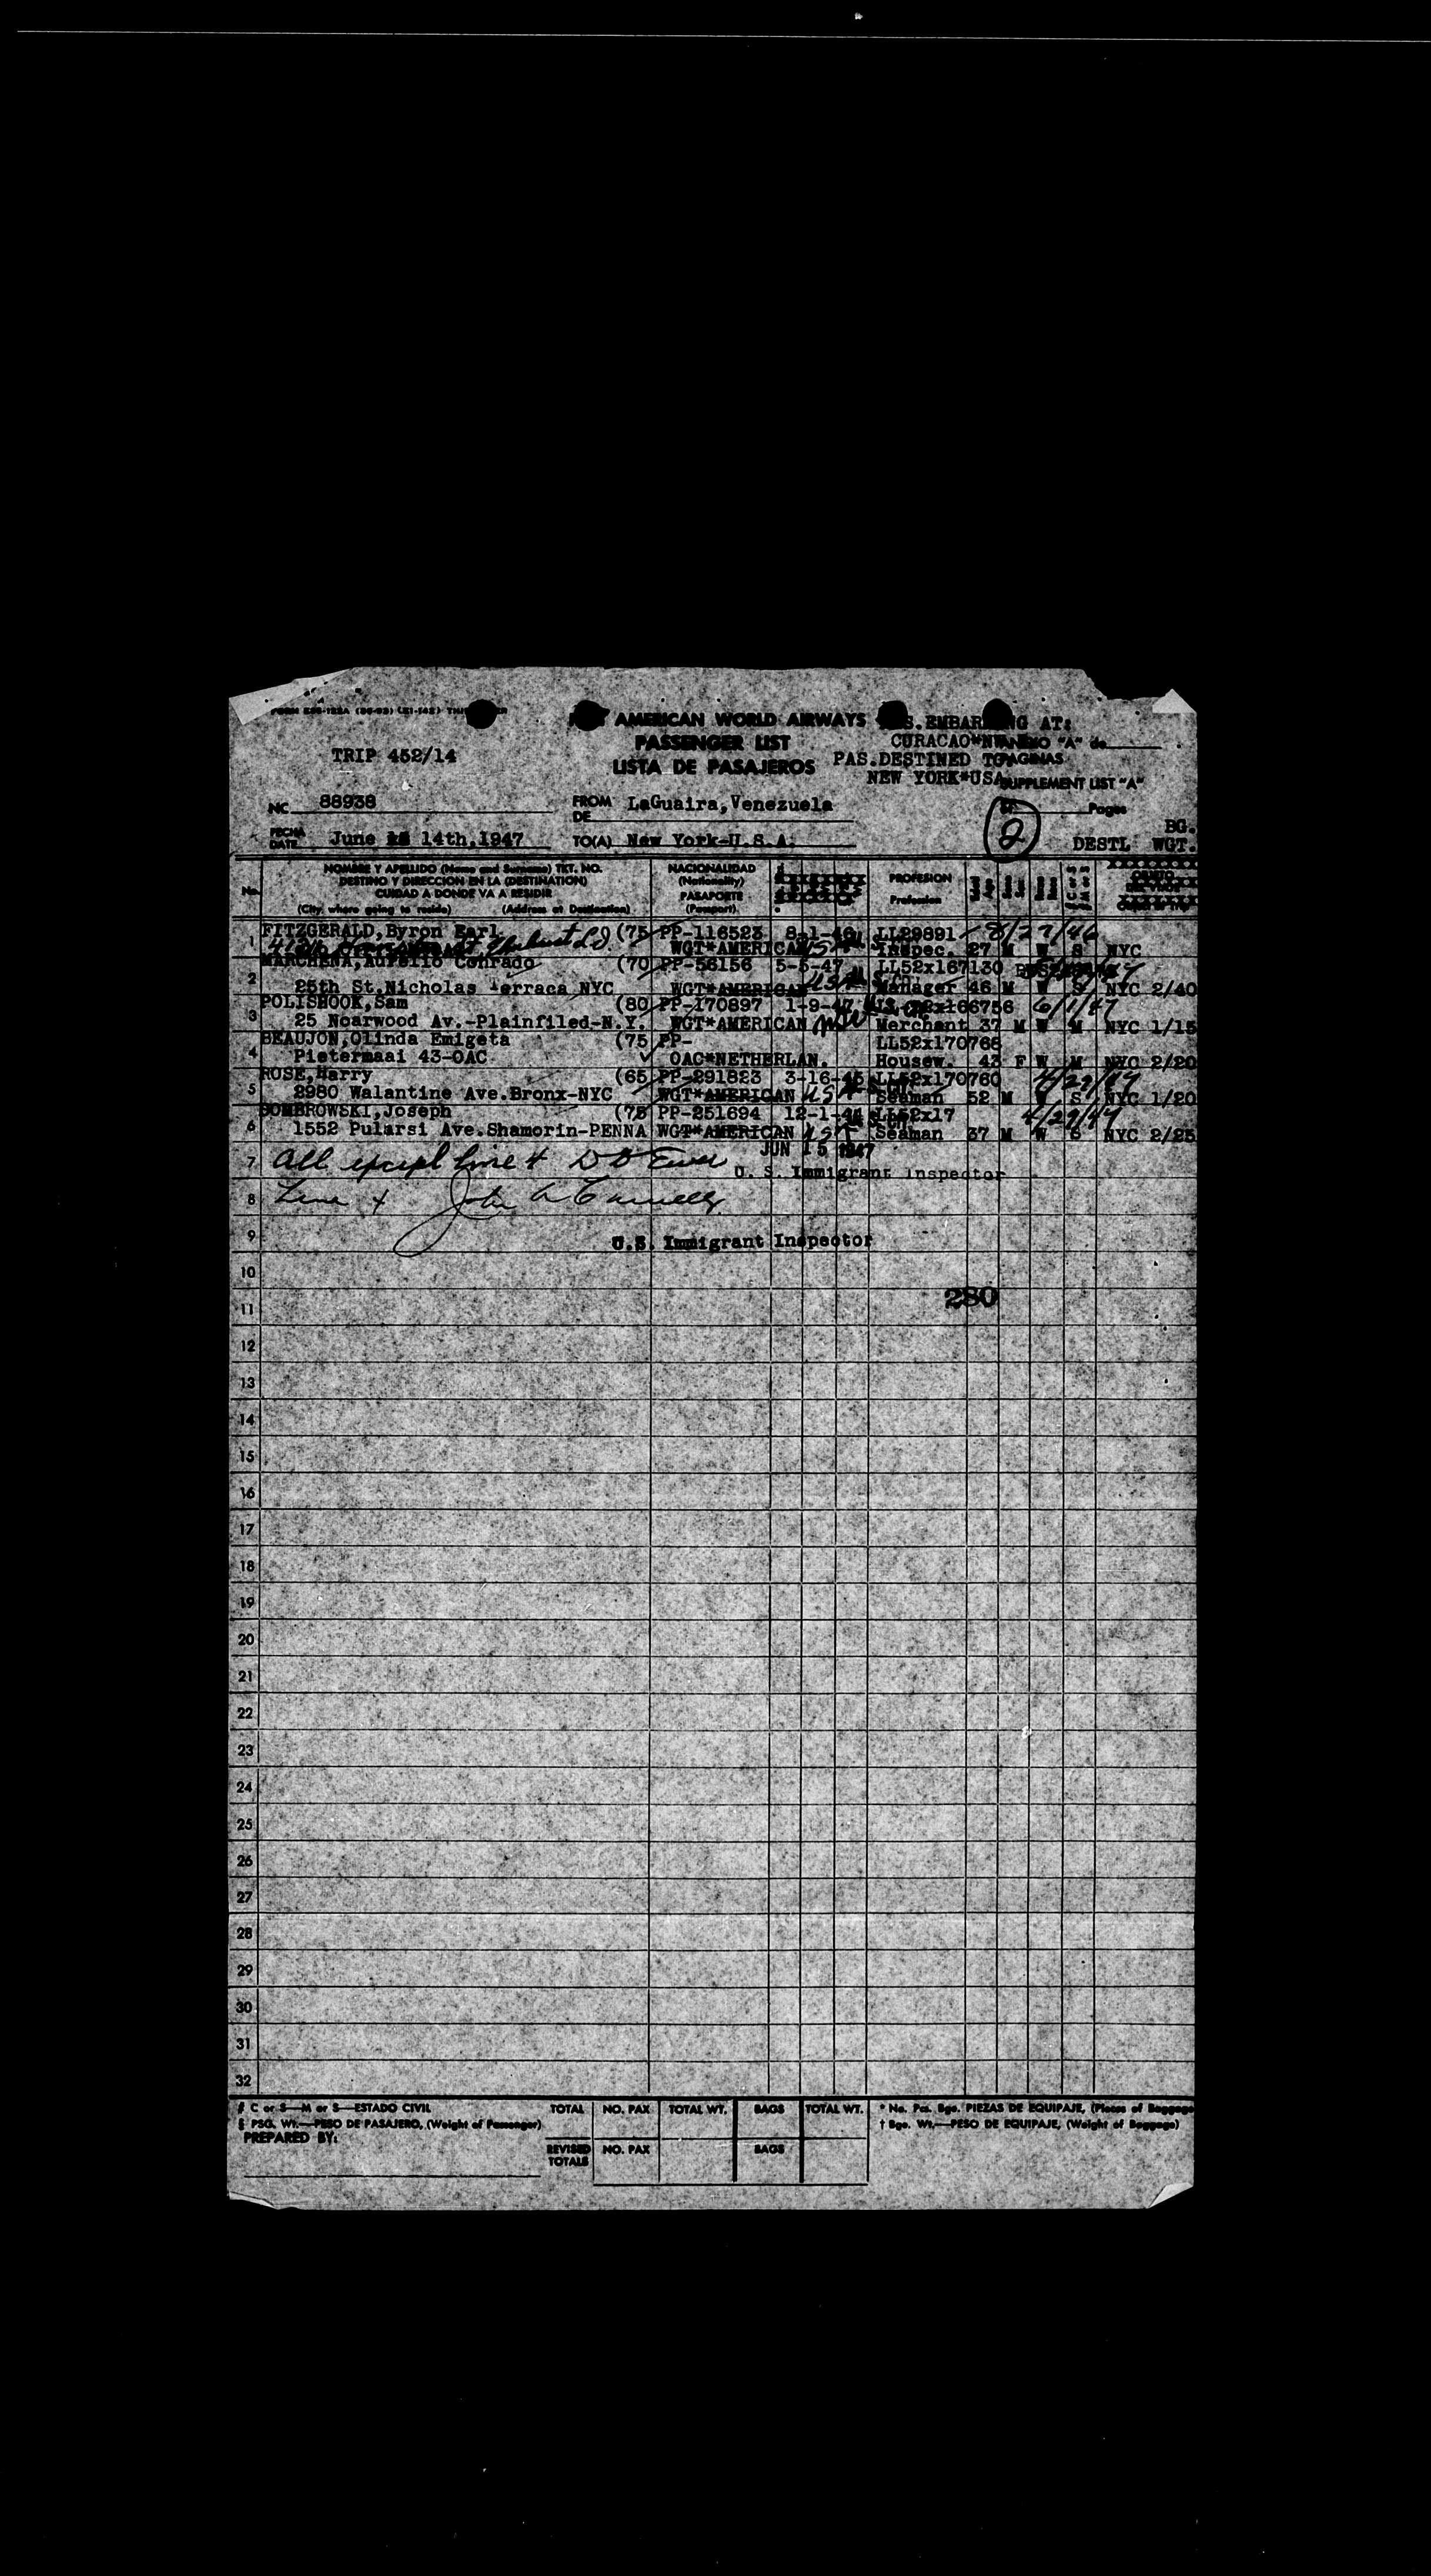 AMERICAN WORLD AIRWAYS
PASSENGER LIST
LISTA DE PASAJEROS
S.EMBAR NG AT:
CURACAO*NW ANEXO "A" de
PAS.DESTINED TO PAGINAS
NEW YORK*USA SUPPLEMENT LIST "A"
TRIP 452/14
NC 88938
FROM
DE LaGuaira,Venezuela
Pages
2
FECHA
DATE June 14th,1947
TO(A) New York-U.S.A.
BG.
DESTL WGT.
No.
NOMBRE Y APELLIDO (Name and Surname) TKT. NO.
DESTINO Y DIRECCION EN LA (DESTINATION)
CUIDAD A DONDE VA A RESIDIR
(City where going to reside) (Address at Destination)
NACIONALIDAD
(Nationality)
PASAPORTE
(Passport)
PROFESION
Profession
OBJETO
DEL VIAJE
1 FITZGERALD,Byron Earl (75 PP-116523 8-1-46 LL29891 8/27/46
WGT*AMERICAN Inspec. 27 M W S NYC
2 MARCHENA,Aurelio Conrado (70 PP-56156 5-5-47 LL52x167130
25th St.Nicholas Terraca NYC WGT*AMERICAN USA Manager 46 M W S NYC 2/40
3 POLISHOOK,Sam (80 PP-170897 1-9-47 166756 6/1/47
25 Noarwood Av.-Plainfiled-N.Y. WGT*AMERICAN Merchant 37 M W M NYC 1/15
4 BEAUJON,Olinda Emigeta (75 PP- LL52x170768
Pietermaai 43-OAC OAC*NETHERLAN. Housew. 43 F W M NYC 2/20
5 ROSE,Harry (65 PP-291823 3-16-45 LL52x170760
2980 Walantine Ave.Bronx-NYC WGT*AMERICAN USA Seaman 52 M W S NYC 1/20
6 DOMBROWSKI,Joseph (75 PP-251694 12-1-44 LL52x17 4/29/47
1552 Pularsi Ave.Shamorin-PENNA WGT*AMERICAN Seaman 37 M W S NYC 2/25
JUN 15 1947
7 All except line 4
U. S. Immigrant Inspector
8 Line 4 John
9 U.S. Immigrant Inspector
10
280
11
12
13
14
15
16
17
18
19
20
21
22
23
24
25
26
27
28
29
30
31
32
# C or S—M or S—ESTADO CIVIL
§ PSG. Wt.—PESO DE PASAJERO, (Weight of Passenger)
PREPARED BY:
TOTAL NO. PAX TOTAL WT. BAGS TOTAL WT.
REVISED TOTALS NO. PAX BAGS
* No. Pcs. Bge. PIEZAS DE EQUIPAJE, (Pieces of Baggage
† Bge. Wt.—PESO DE EQUIPAJE, (Weight of Baggage)